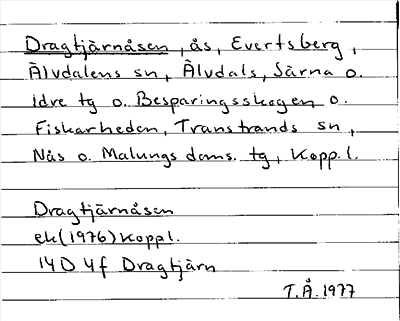 Dragtjärnåsen, ås, Evertsberg,
Älvdalens sn, Älvdals, Särna o.
Idre tg o. Besparingsskogen o.
Fiskarheden, Transtrands sn,
Nås o. Malungs doms. tg, Kopp. l.
Dragtjärnåsen
ek(1976) Koppl.
14D 4f Dragtjärn
T.Å. 1977